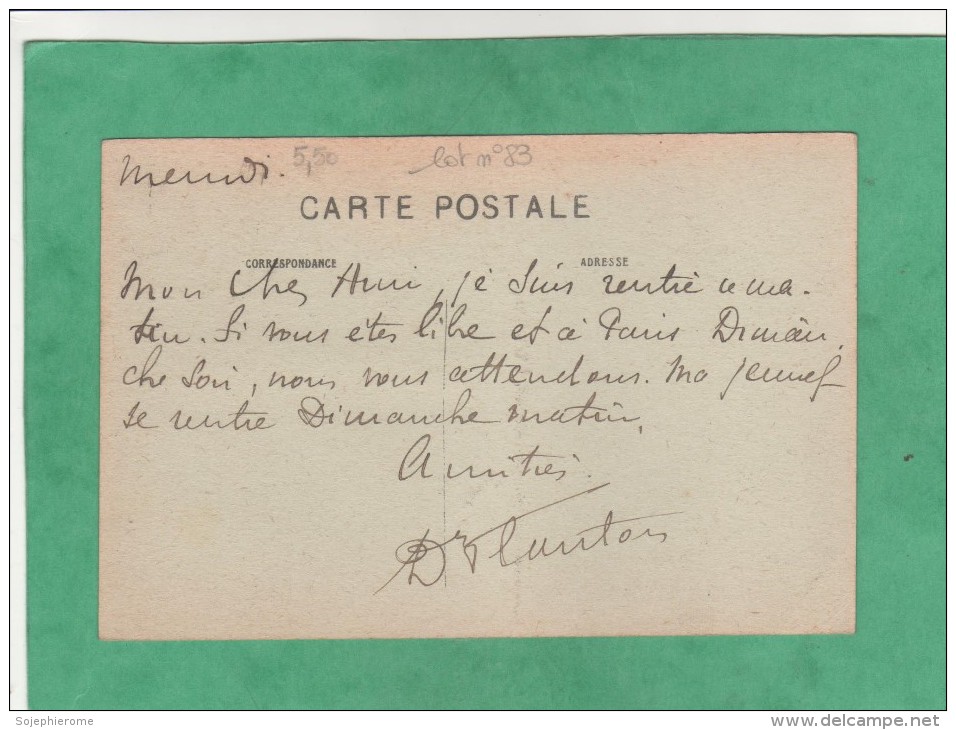 Mercredi.
5,50
lot n° 83
CARTE POSTALE
CORRESPONDANCE
ADRESSE
Mon Cher Ami, je suis rentré ce ma-
tin. Si vous êtes libre et à Paris Diman
che soir, nous vous attendons. Ma femme
se rentre Dimanche matin,
Amitiés.
Dr
Sojephierome
delcampe.net